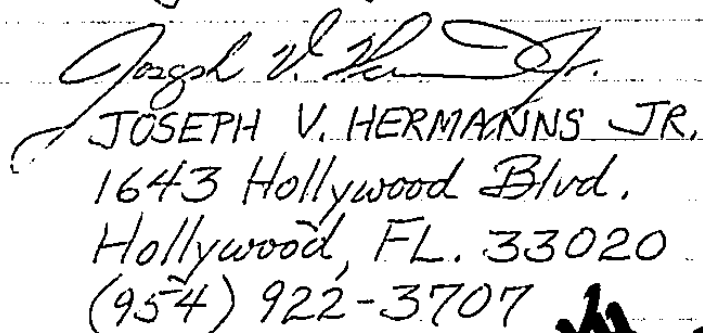 Joseph V. Hermanns Jr.
JOSEPH V. HERMANNS JR.
1643 Hollywood Blvd.
Hollywood, FL. 33020
(954) 922-3707